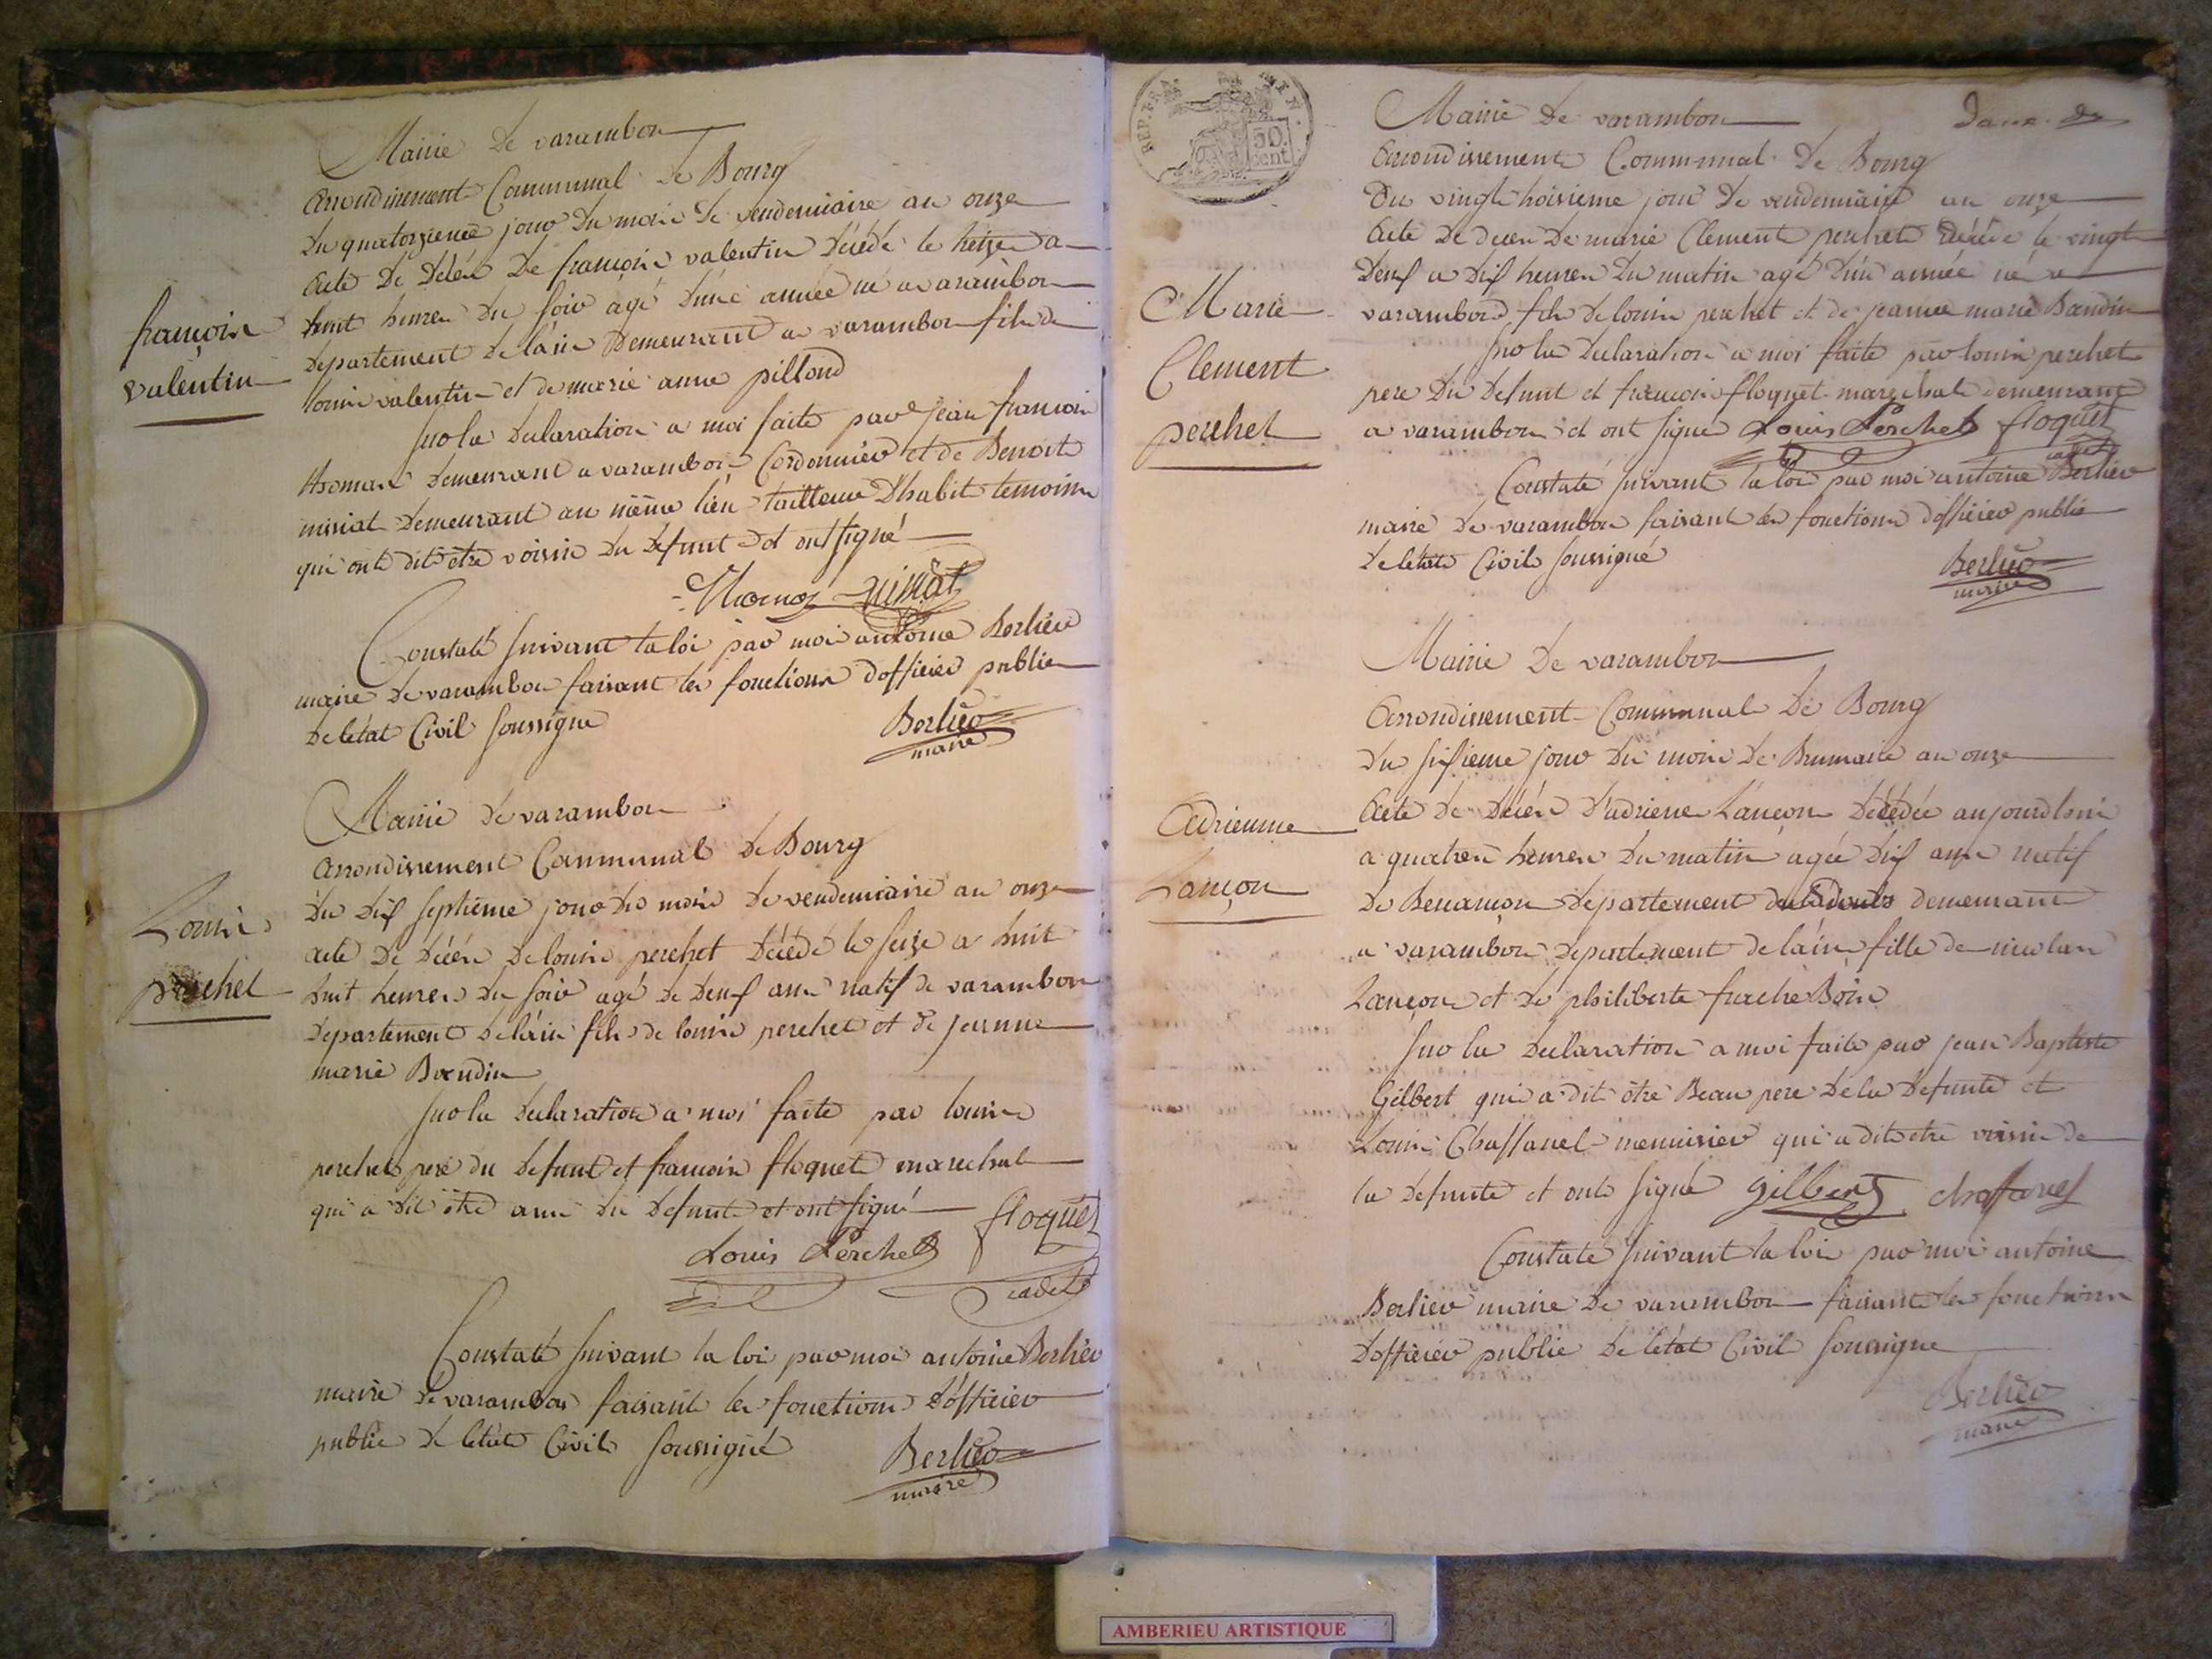 Mairie de varambon
Arrondissement Communal de Bourg
Du quatorzieme jour du mois de vendemiaire an onze
Acte de décés de françois valentin décédé le treize a
huit heures du soir agé d'une année né a varambon
departement de l'ain demeurant a varambon fils de
louis valentin et de marie anne pillond
françois
valentin
sur la declaration a moi faite par jean francois
demeurant a varambon Cordonnier et de Benoit
missiat demeurant au même lieu tailleur d'habit temoins
qui ont dit être voisin du défunt et ont signé
Constaté suivant la loi par moi antoine Berlier
maire de varambon faisant les fonctions d'officier public
de l'état Civil soussigne
Berlier
maire
Mairie de varambon
Arrondissement Communal de Bourg
du dix septieme jour du mois de vendemiaire an onze
Louis
perchet
acte de décés de louis perchet décédé le seize a huit
huit heures du soir agé de deux ans natif de varambon
departement de l'ain fils de louis perchet et de jeanne
marie Baudin
sur la declaration a moi faite par louis
perchet pere du defunt et francois floquet marechal
qui a dit être ami du defunt et ont signé
floquet
Louis Perchet
cadet
Constaté suivant la loi par moi antoine Berlier
maire de varambon faisant les fonctions d'officier
public de l'etat Civil soussigné
Berlier
maire
REP. FRA.
50.
cent.
Mairie de varambon
Arrondissement Communal de Bourg
Du vingt troisieme jour de vendemiaire an onze
Acte de deces de marie Clement perchet décédé le vingt
deux a dix heures du matin agé d'un année né a
varambon fils de louis perchet et de jeanne marie Baudin
Marie
Clement
perchet
sur la declaration a moi faite par louis perchet
pere du defunt et francois floquet marechal demeurant
a varambon et ont signe Louis Perchet floquet
cadet
Constaté suivant la loi par moi antoine Berlier
maire de varambon faisant les fonctions d'officier public
de l'etat Civil soussigné
Berlier
maire
Mairie de varambon
Arrondissement Communal de Bourg
du sixieme jour du mois de Brumaire an onze
Adrienne
Lançon
Acte de décés d'adriene Lançon décédée aujourdhui
a quatres heures du matin agée dix ans natif
de Besançon departement du doubs demeurant
a varambon departement de l'ain fille de nicolas
Lançon et de philiberte
sur la declaration a moi faite par jean Baptiste
Gilbert qui a dit être Beau pere de la defunte et
Louis Chassanel menuisier qui a dit etre voisin de
la defunte et ont signé gilbert chassanel
Constaté suivant la loi par moi antoine
Berlier maire de varambon faisant les fonctions
d'officier public de l'état Civil soussigne
Berlier
maire
AMBERIEU ARTISTIQUE